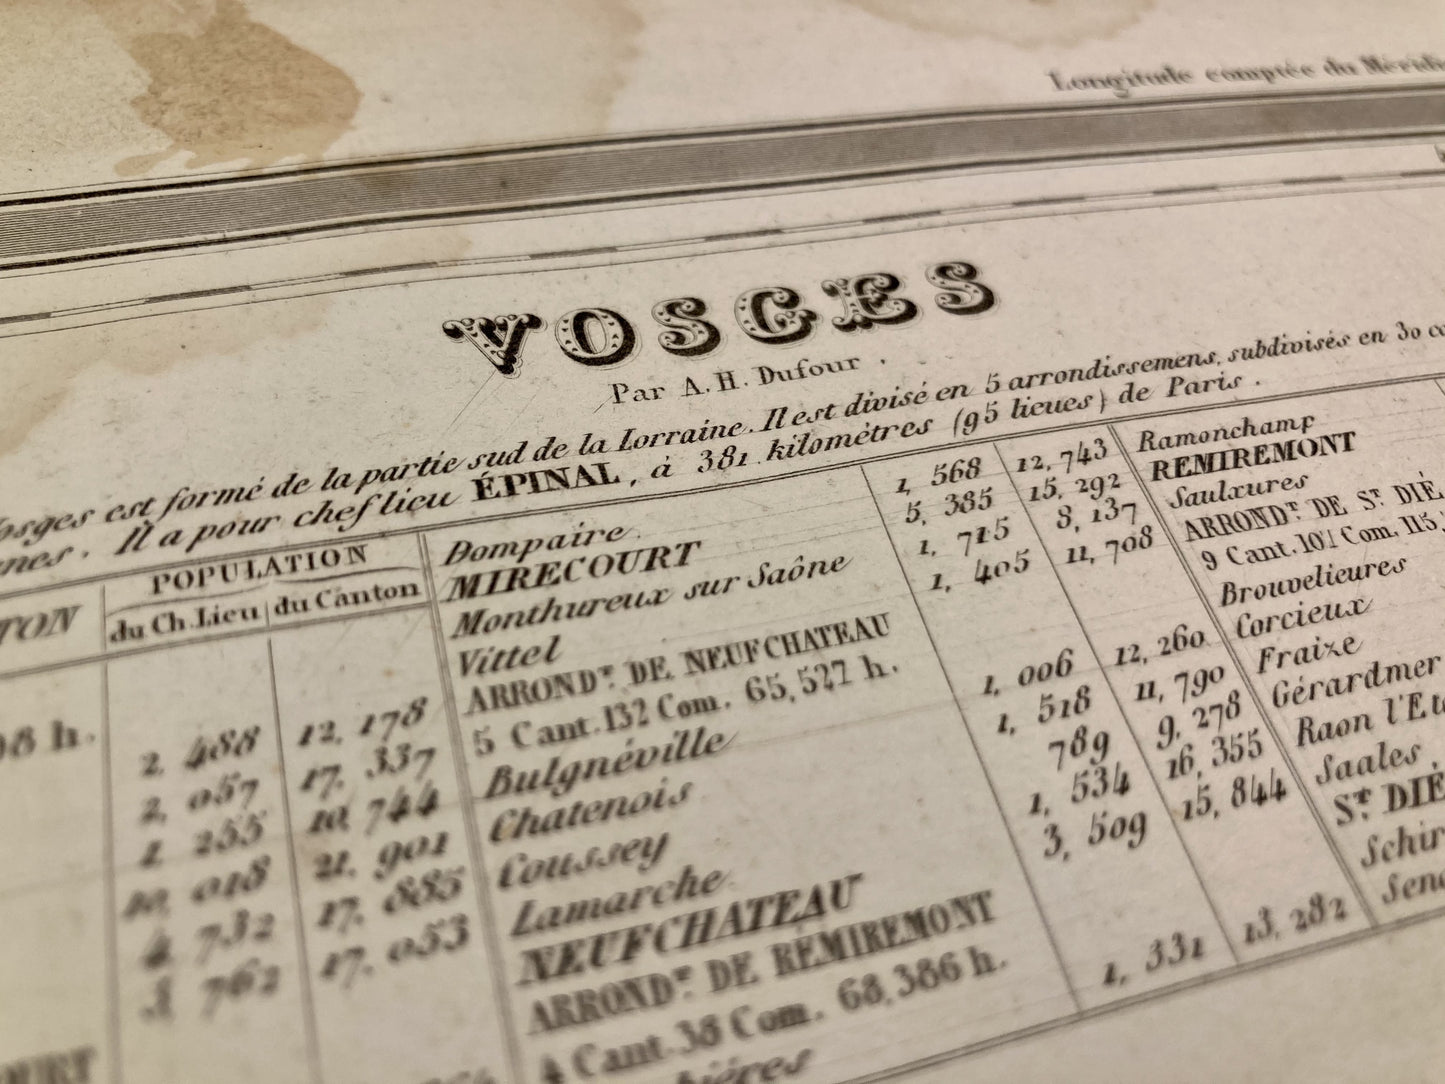 Longitude comptée du
VOSGES
Par A. H. Dufour .
est formé de la partie sud de la Lorraine. Il est divisé en 5 arrondissemens, subdivisés en 30
Il a pour chef lieu ÉPINAL, à 381 kilomètres (95 lieues) de Paris .
POPULATION
du Ch. Lieu du Canton
2, 488 12, 178
2, 057 17, 337
1 255 10, 744
10, 018 21, 901
4, 732 17, 885
3, 762 17, 053
Dompaire 1, 568 12, 743
MIRECOURT 5, 385 15, 292
Monthureux sur Saône 1, 715 8, 137
Vittel 1, 405 11, 708
ARROND.T DE NEUFCHATEAU
5 Cant. 132 Com. 65,527 h.
Bulgnéville 1, 006 12, 260
Chatenois 1, 518 11, 790
Coussey 789 9, 278
Lamarche 1, 534 16, 355
NEUFCHATEAU 3, 509 15, 844
ARROND.T DE REMIREMONT
4 Cant. 38 Com. 68,386 h.
1, 331 13, 282
Ramonchamp
REMIREMONT
Saulxures
ARROND.T DE ST. DIÉ
9 Cant. 101 Com. 115,
Brouvelieures
Corcieux
Fraize
Gérardmer
Raon
Saales
ST. DIÉ